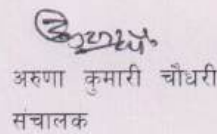 अरुणा कुमारी चौधरी
संचालक